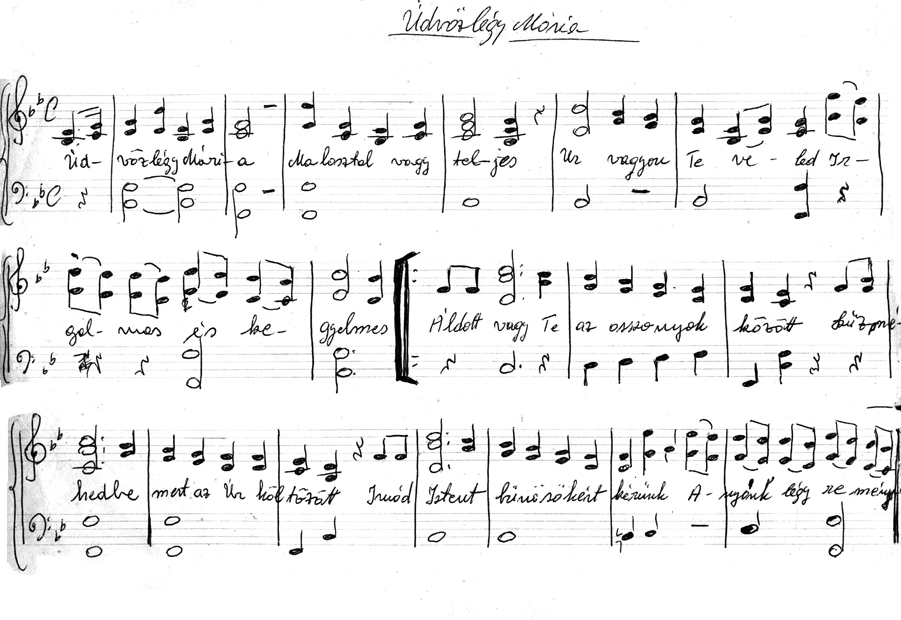 Üdvözlégy Mária
Üd- vözlégy Mári-a Malasztal vagy tel-jes Úr vagyon Te ve- led Ir-
gal- mas és ke- gyelmes Áldott vagy Te az asszonyok között
hedbe mert az Úr köl tözött Imád Istent bűnösökért kérünk A- nyánk légy re mény